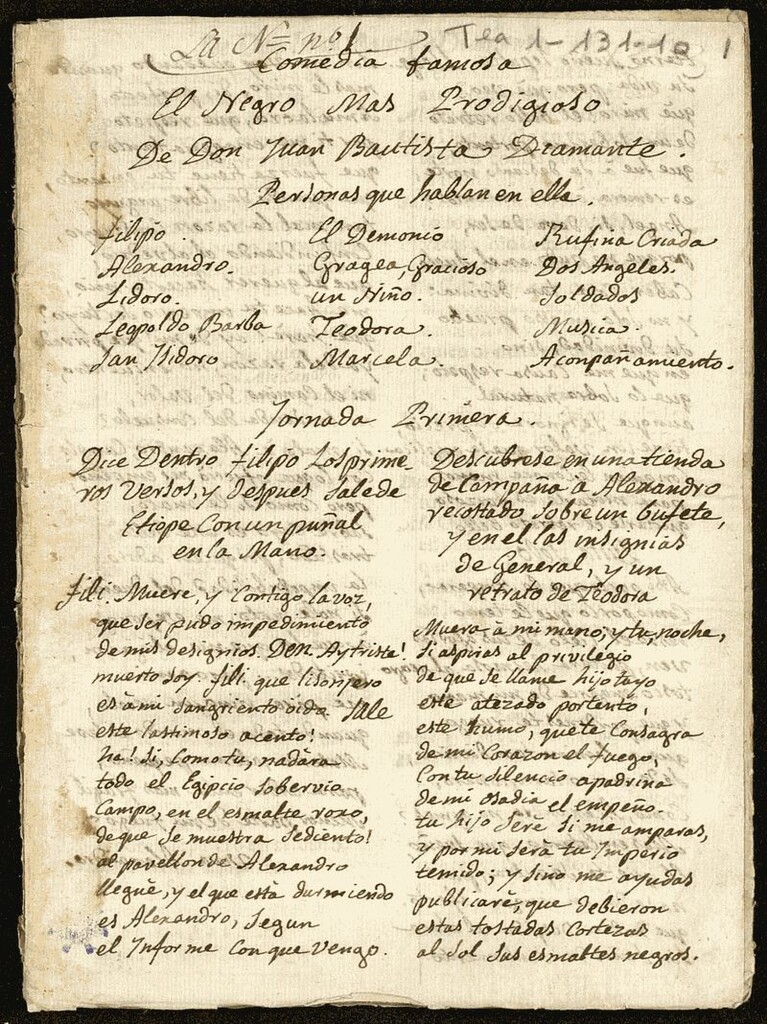 La Nª nº 1
Tea 1-131-10
1
Comedia famosa
El Negro Mas Prodigioso
De Don Juan Bautista Diamante.
Personas que hablan en ella.
Filipo. El Demonio Rufina Criada
Alexandro. Gragea, Gracioso Dos Angeles.
Lidoro. un Niño. Soldados
Leopoldo, Barba Teodora. Musica.
San Isidoro Marcela. Acompañamiento.
Jornada Primera.
Dice Dentro Filipo los prime-
ros Versos, y despues sale de
Etiope Con un puñal
en la Mano.
Fili. Muere, y Contigo la voz,
que ser pudo impedimento
de mis designios. Den. Ay triste!
muerto soy. Fili. que lisonjero
es à mi sangriento oido Sale
este lastimoso acento!
ha! si, como tu, nadàra
todo el Egipcio sobervio
Campo, en el esmalte roxo,
de que se muestra sediento!
al pavellon de Alexandro
lleguè, y el que està durmiendo
es Alexandro, segun
el Informe Con que Vengo.
Descubrese en una tienda
de Campaña à Alexandro
recostado sobre un bufete,
y en el las insignias
de General, y un
retrato de Teodora
Muera à mi mano; y tu, noche,
si aspiras al privilegio
de que se llame hijo tuyo
este atezado portento,
este humo, que te Consagra
de mi Corazon el fuego,
Con tu silencio apadrina
de mi osadia el empeño.
tu hijo serè si me amparas,
y por mi serà tu Imperio
temido; y sino me ayudas
publicarè, que debieron
estas tostadas Cortezas
al Sol sus esmaltes negros.